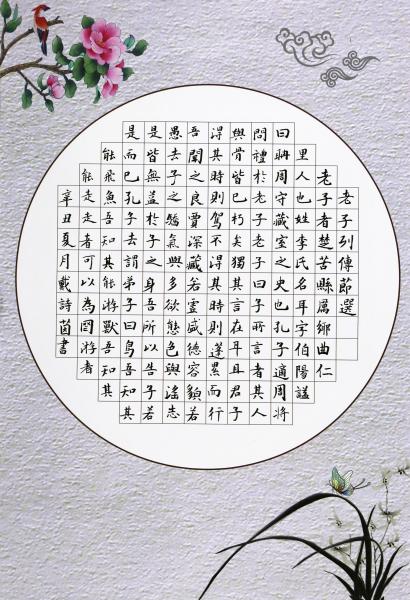 老子列傳節選
老子者楚苦縣厲鄉曲仁
里人也姓李氏名耳字伯陽謚
曰聃周守藏室之史也孔子適周將
問禮於老子老子曰子所言者其人
與骨皆已朽矣獨其言在耳且君子
得其時則駕不得其時則蓬累而行
吾聞之良賈深藏若虛盛德容貌若
愚去子之驕氣與多欲態色與淫志
是皆無益於子之身吾所以告子若
是而已孔子去謂弟子曰鳥吾知其
能飛魚吾知其能游獸吾知其
能走走者可以為罔游者
辛丑夏月戴詩茵書